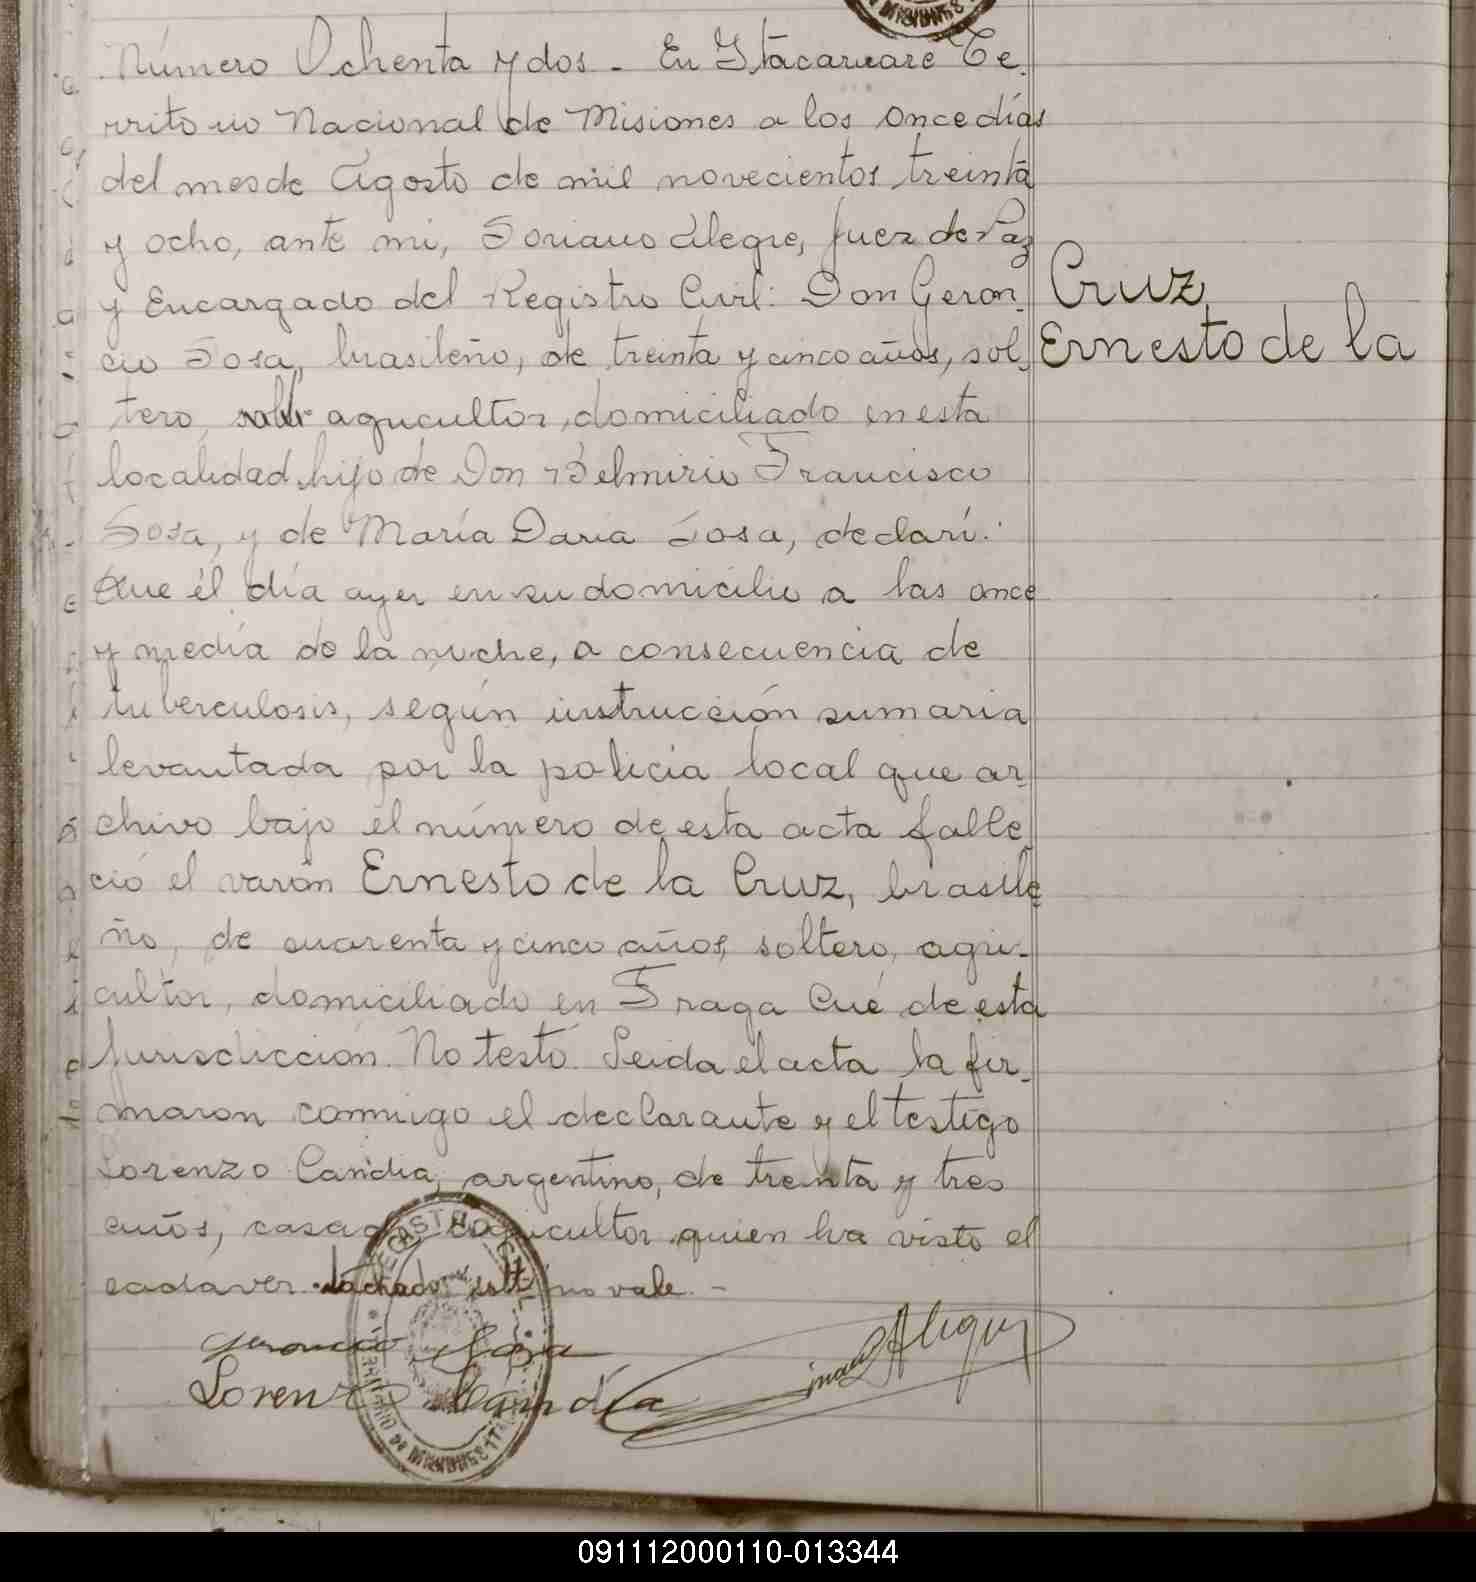 Número Ochenta y dos - En Itacaruare Te-
rritorio Nacional de Misiones a los once días
del mes de Agosto de mil novecientos treinta
y ocho, ante mi, Soriano Alegre, Juez de Paz
y Encargado del Registro Civil: Don Geron-
cio Sosa, brasileño, de treinta y cinco años, sol-
tero, agricultor, domiciliado en esta
localidad, hijo de Don Belmirio Francisco
Sosa, y de María Daria Sosa, declaró:
Que él día ayer en su domicilio a las once
y media de la noche, a consecuencia de
tuberculosis, según instrucción sumaria
levantada por la policia local que ar-
chivo bajo el número de esta acta falle-
ció el varón Ernesto de la Cruz, brasile-
ño, de cuarenta y cinco años, soltero, agri-
cultor, domiciliado en Fraga Cué de esta
jurisdicción. No testó. Leida el acta la fir-
maron conmigo el declarante y el testigo
Lorenzo Candia, argentino, de treinta y tres
años, casado, agricultor quien ha visto el
cadaver. tachado: solt no vale. -
Cruz
Ernesto de la
Geroncio Sosa
Lorenzo Candía
Alegre
091112000110-013344